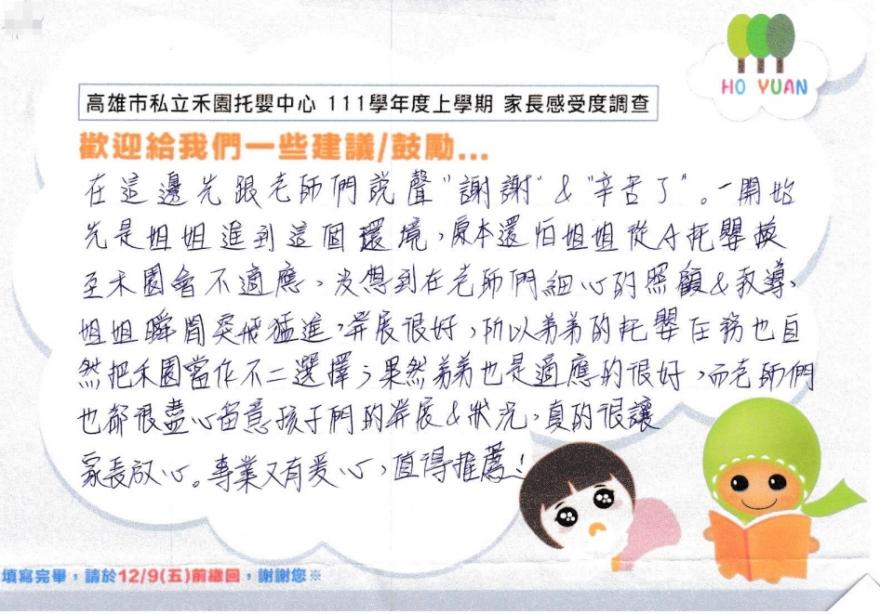 HO YUAN
高雄市私立禾園托嬰中心 111學年度上學期 家長感受度調查
歡迎給我們一些建議/鼓勵...
在這邊先跟老師們說聲"謝謝"&"辛苦了"。一開始
先是姐姐進到這個環境，原本還怕姐姐從A托嬰換
至禾園會不適應，沒想到在老師們細心的照顧&教導，
姐姐瞬間突飛猛進，發展很好，所以弟弟的托嬰任務也自
然把禾園當作不二選擇；果然弟弟也是適應的很好，而老師們
也都很盡心留意孩子們的發展&狀況，真的很讓
家長放心。專業又有愛心，值得推薦！
填寫完畢，請於12/9(五)前繳回，謝謝您※